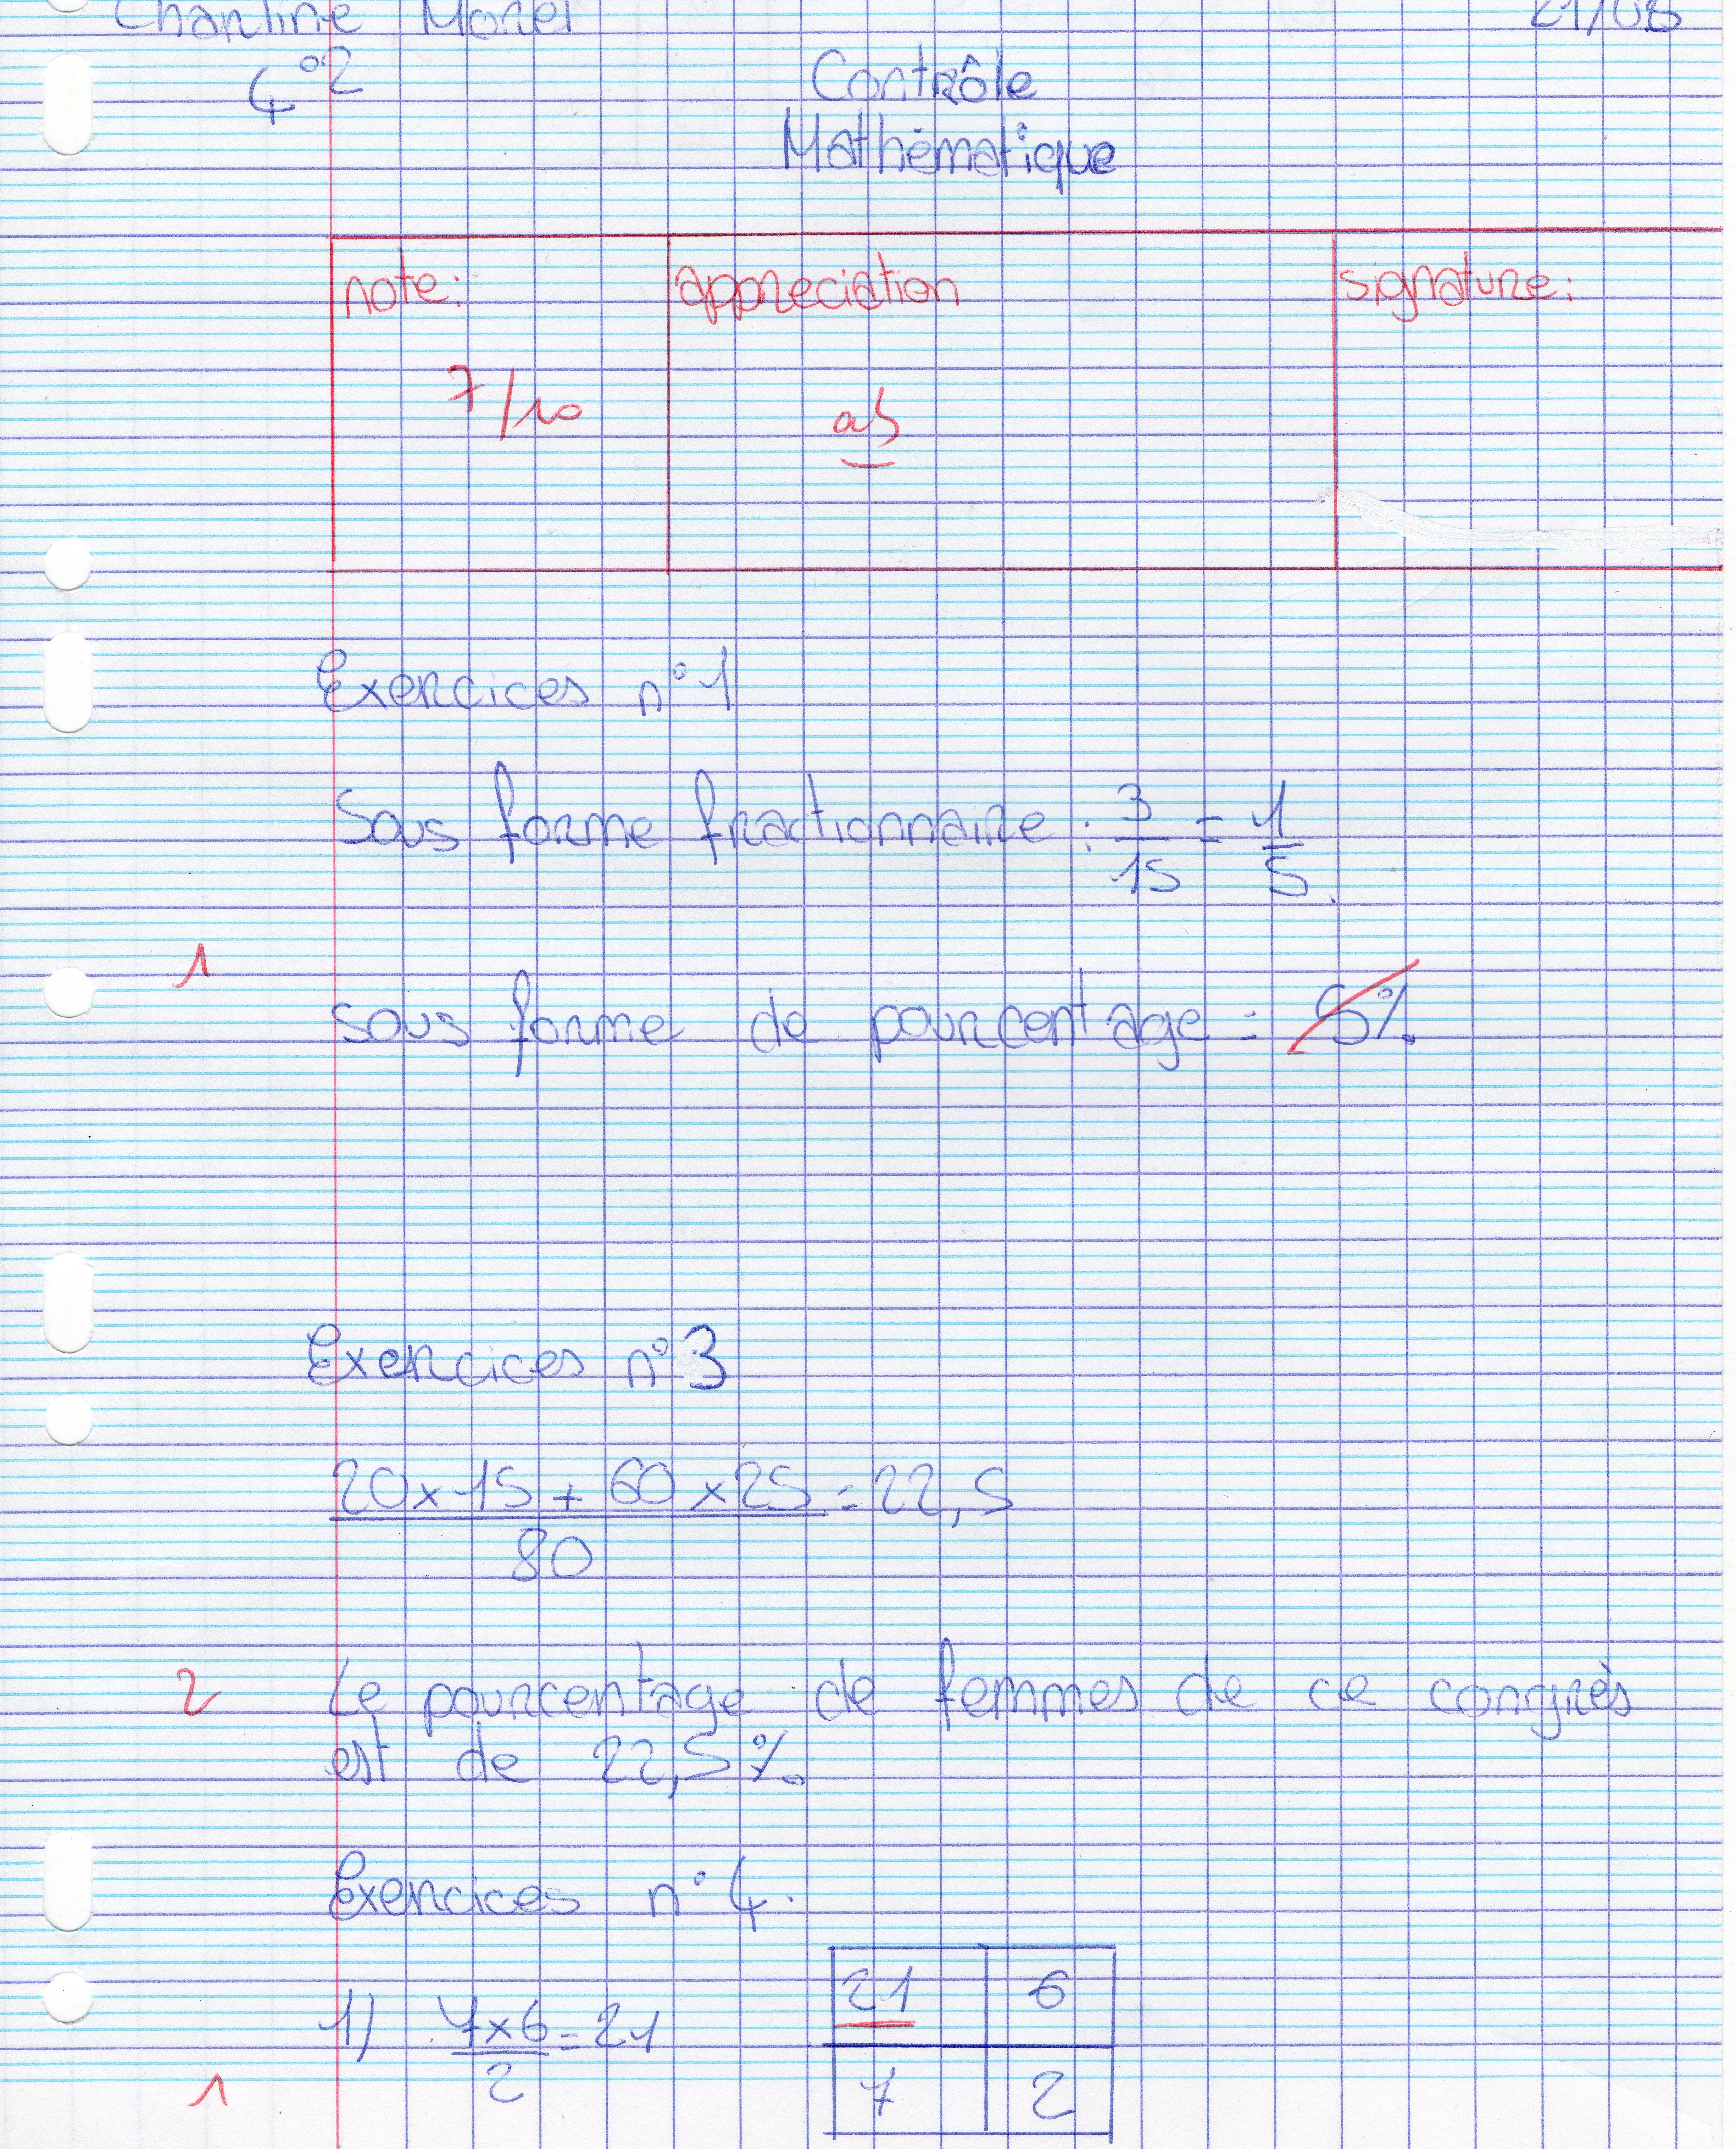 Charline Morel 21/05
4°2 Contrôle
Mathématique
note: appreciation signature:
7/10 ab
Exercices n°1
Sous forme fractionnaire : 3/15 = 1/5.
1
sous forme de pourcentage = 5%.
Exercices n°3
(20x15 + 60x25)/80 = 22,5
2 Le pourcentage de femmes de ce congrès
est de 22,5%.
Exercices n°4.
1) 7x6/2 = 21
21 6
7 2
1